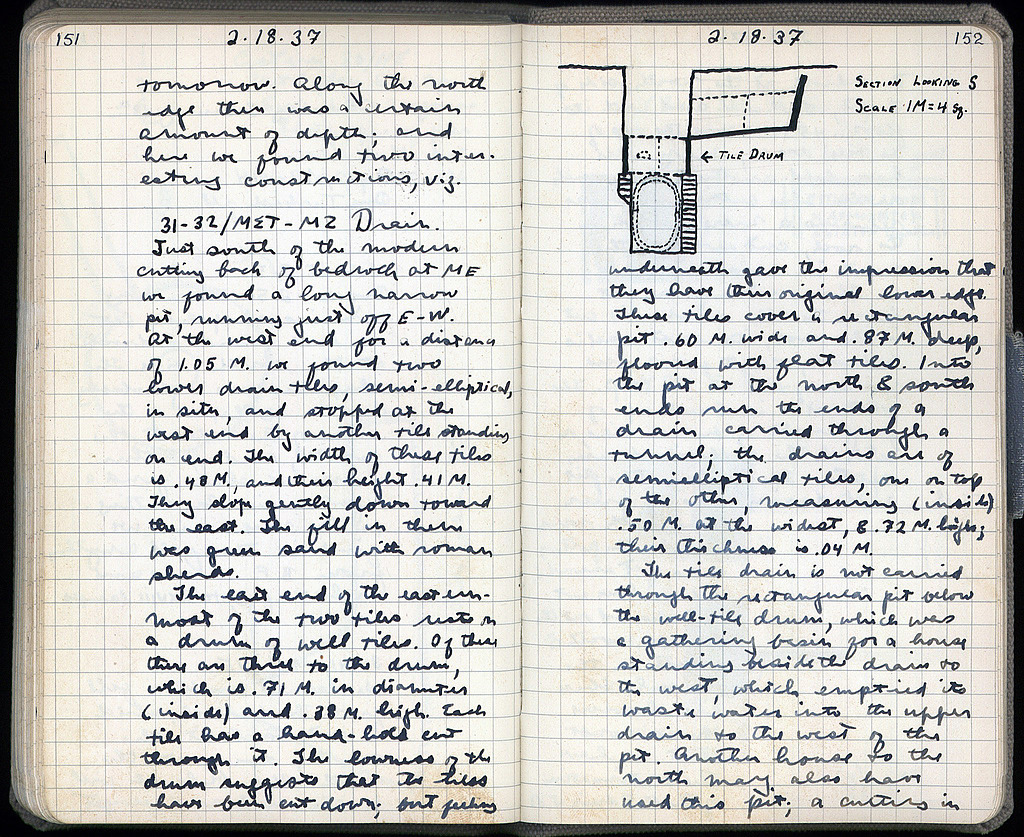 151
2·18·37
tomorrow. Along the north
edge there was a certain
amount of depth; and
here we found two inter-
esting constructions, viz.
31-32/ΜΣΤ-ΜΖ Drain.
Just south of the modern
cutting back of bedrock at ΜΕ
we found a long narrow
pit, running just off E-W.
At the west end for a distance
of 1.05 M. we found two
lower drain tiles, semi-elliptical,
in situ, and stopped at the
west end by another tile standing
on end. The width of these tiles
is .48 M., and their height .41 M.
They slope gently down toward
the east. The fill in them
was green sand with roman
sherds.
The east end of the eastern-
most of the two tiles rests on
a drum of well tiles. Of these
there are three to the drum,
which is .71 M. in diameter
(inside) and .38 M. high. Each
tile has a hand-hold cut
through it. The lowness of the
drum suggests that the tiles
have been cut down; but feeling
2·18·37
152
SECTION LOOKING S
SCALE 1M=4 sq.
← TILE DRUM
underneath gave the impression that
they have their original lower edge.
These tiles cover a rectangular
pit .60 M. wide and .87 M. deep,
floored with flat tiles. Into
the pit at the north & south
ends run the ends of a
drain carried through a
tunnel; the drains are of
semielliptical tiles, one on top
of the other, measuring (inside)
.50 M. at the widest, & .72 M. high;
their thickness is .04 M.
The tile drain is not carried
through the rectangular pit below
the well-tile drum, which was
a gathering basin for a house
standing beside the drain to
the west, which emptied its
waste water into the upper
drain to the west of the
pit. Another house to the
north may also have
used this pit; a cutting in